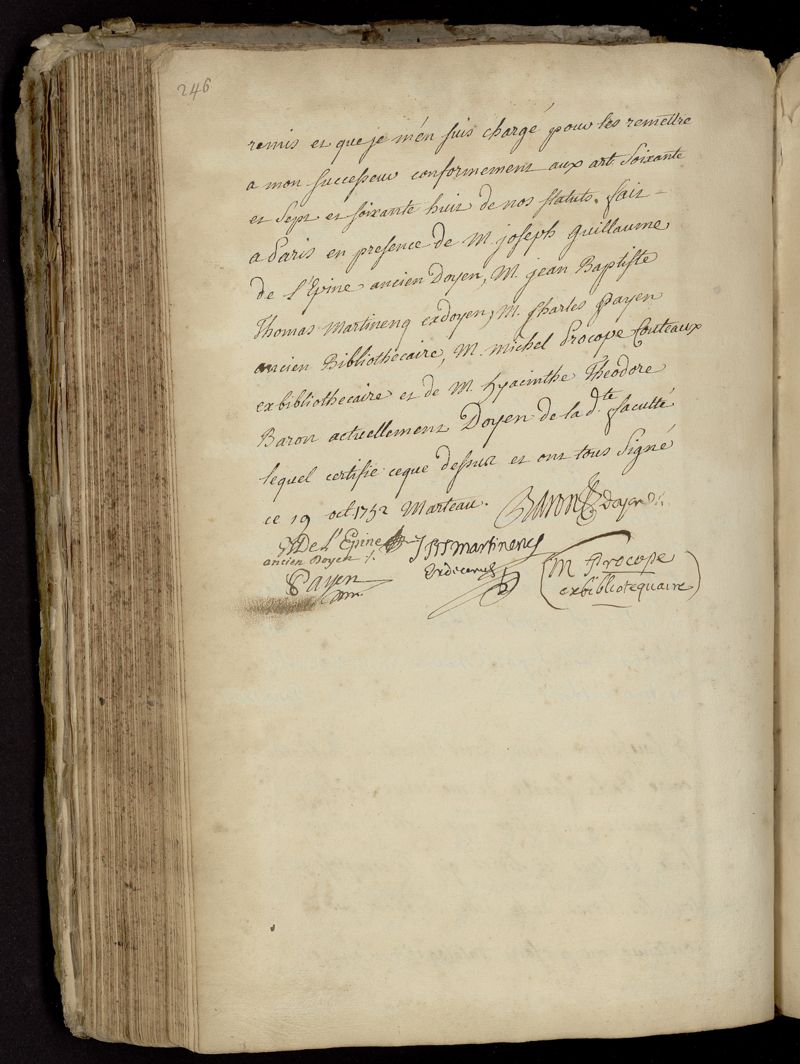 246
remis et que je m'en suis chargé pour les remettre
a mon successeur conformement aux art. soixante
et sept et soixante huit de nos statuts. fait -
a Paris en presence de M. joseph Guillaume
de l'Epine ancien Doyen, M. jean Baptiste
Thomas Martinenq exdoyen, M. Charles Payen
ancien Bibliothecaire, M. michel Procope Couteaux
exbibliothecaire et de M. hyacinthe Theodore
Baron actuellement Doyen de la d.te faculté
lequel certifie ce que dessus et ont tous signé
ce 19 oct. 1752 Marteau. Baron Doyen
De L'Epine J B T Martinenq
ancien Doyen
exdoyen M Procope
Payen exbibliotequaire